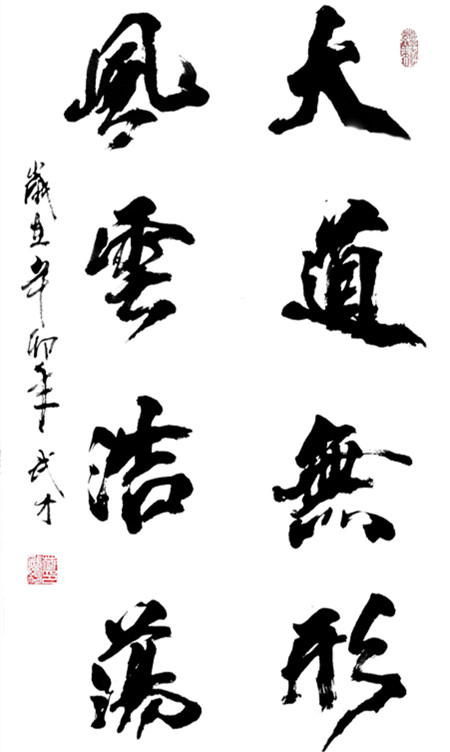 大道無形
風雲浩蕩
歲在辛卯年武才